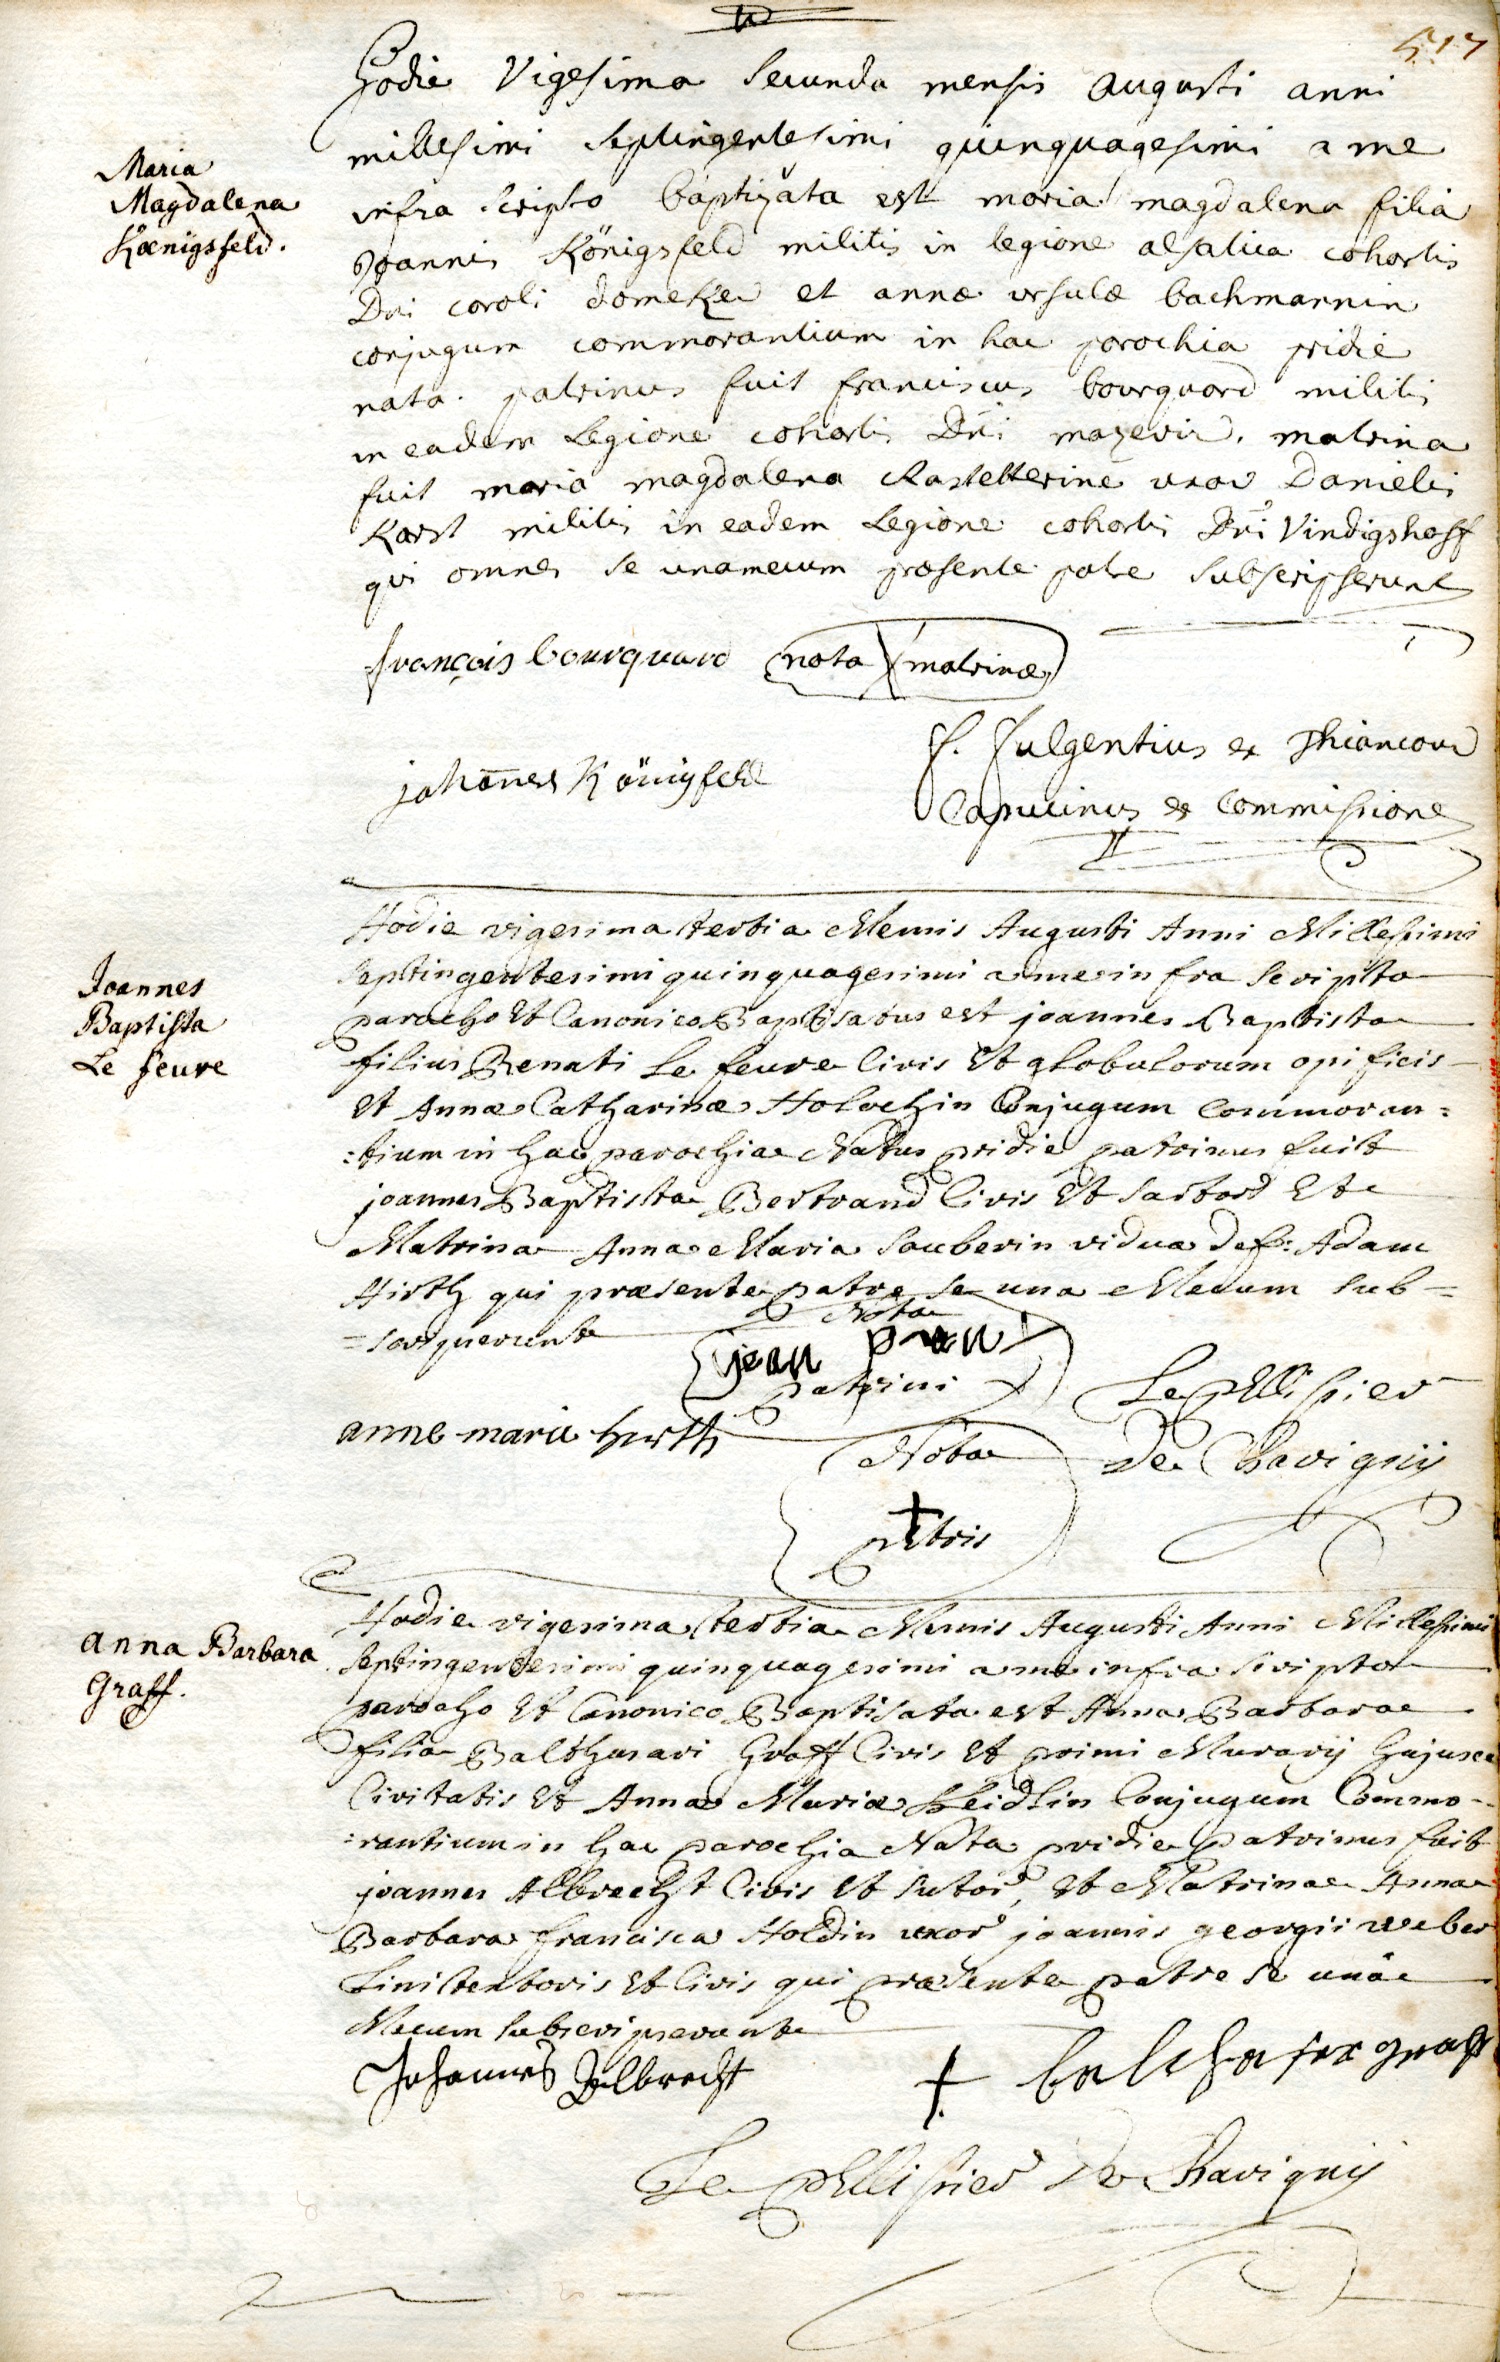 517
Hodie Vigesima Secunda mensis Augusti anni
millesimi Septingentesimi quinquagesimi a me
Maria
Magdalena
Kœnigsfeld.
infra scripto baptizata est maria magdalena filia
Joannis Königsfeld militis in legione alsatica cohortis
Dni caroli et annæ ursulæ bachmannin
conjugum commorantium in hac parochia pridie
nata. patrinus fuit franciscus bourquard militis
in eadem Legione cohortis Dni matrina
fuit maria magdalena Rastetterine uxor Danielis
Karst militis in eadem Legione cohortis Dni Vindigshoff
qui omnes se unamecum præsente patre subscripserunt
françois bourquard nota matrinæ
f. fulgentius ex Thiancour
johannes Königfeld
Capucinus ex Commissione
Hodie vigesima tertia Mensis Augusti Anni Millesimi
Septingentesimi quinquagesimi a me infra scripto
Joannes
Baptista
Le feure
parocho Et Canonico Baptisatus est joannes Baptista
filius Renati Le feure Civis Et globulorum opificis
Et Annæ Catharinæ Holochin Conjugum Commoran=
=tium in hac parochia Natus pridie patrinus fuit
joannes Baptista Bertrand Civis Et Sartor Et
Matrina Anna Maria Sauberin vidua def: Adam
Hirth qui præsente patre se una Mecum sub=
=scripserunt
Nota
jean
patrini
Le pellissier
anne marie hirth
Nota
De Chavigny
+
patris
Hodie vigesima tertia Mensis Augusti Anni Millesimi
anna Barbara
Graff.
Septingentesimi quinquagesimi a me infra scripto
parocho Et Canonico Baptisata est Anna Barbara
filia Balthasari Graff Civis Et primi Murarij hujusce
Civitatis Et Annæ Mariæ Heidlin Conjugum Commo=
=rantium in hac parochia Nata pridie patrinus fuit
joannes Albrecht Civis Et Sutor, Et Matrina Anna
Barbara francisca Holdin uxor joannis georgii weber
Linitextoris Et Civis qui præsente patre se unâ
Mecum subscripserunt
Johannes Albrecht + balthasar graff
Le pellissier De Chavigny